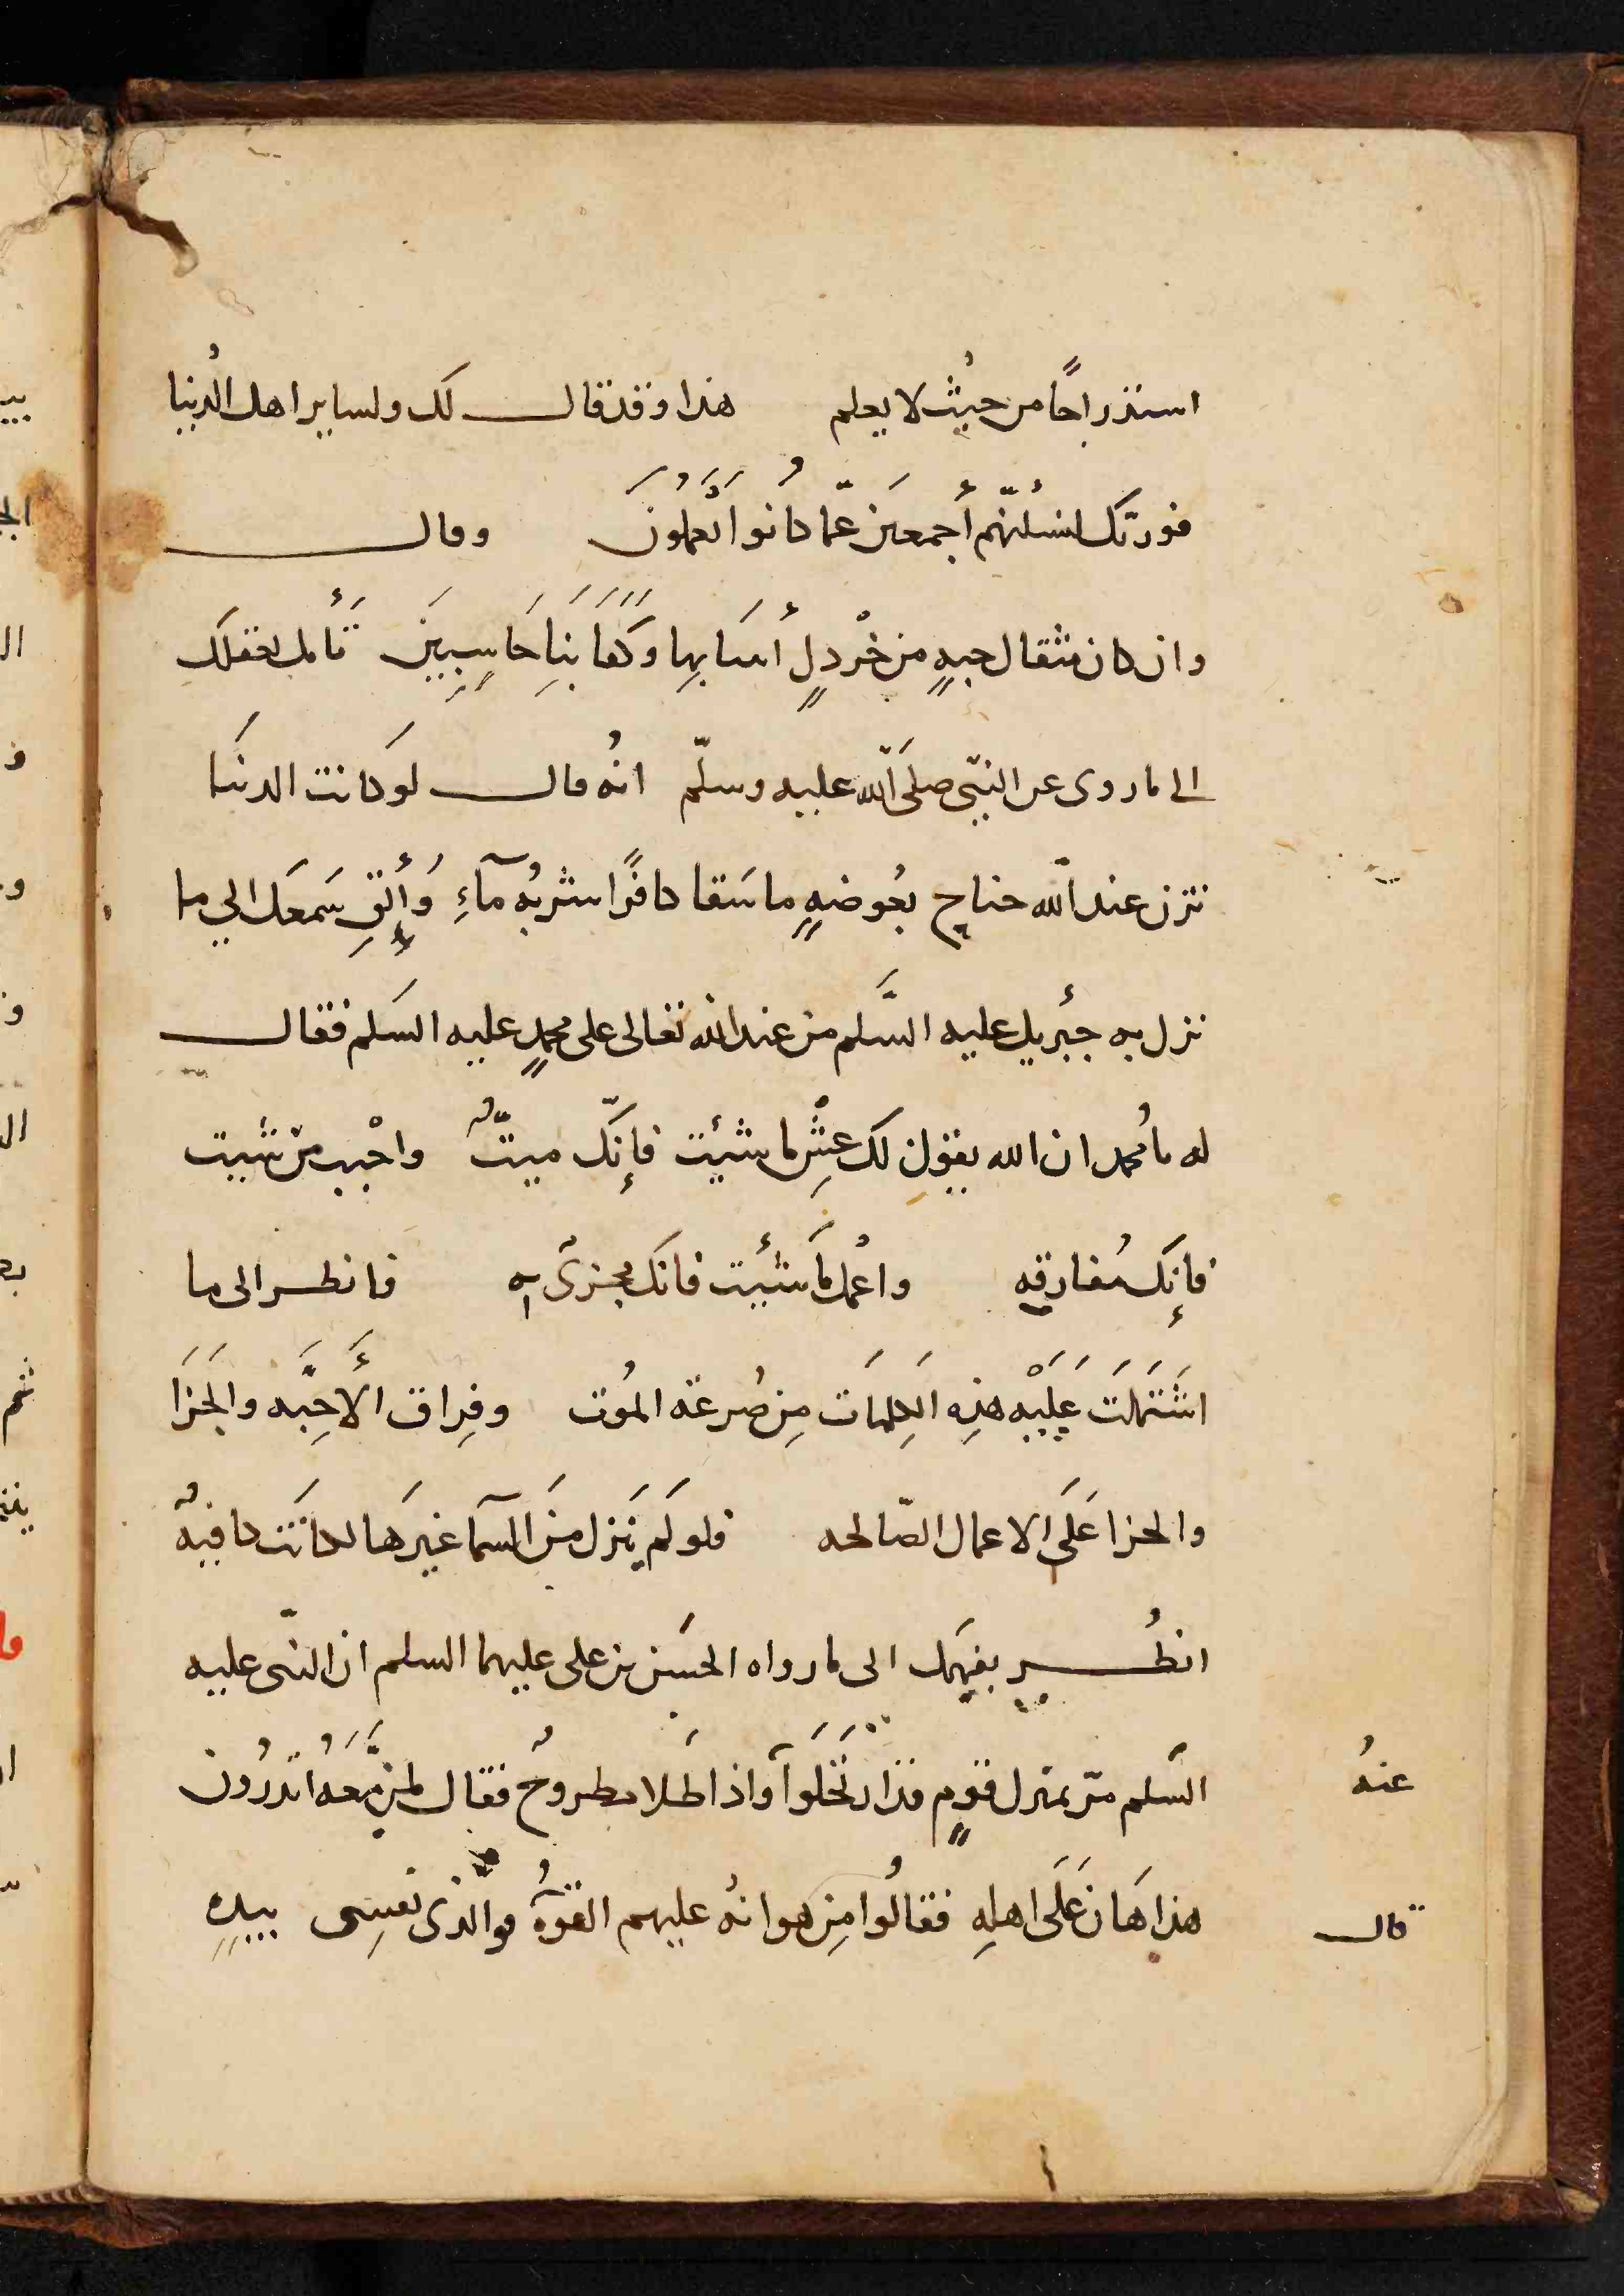 استدراجًا من حيثُ لا يعلم هذا وقد قال لك ولساير اهل الدُنيا
فوربّك لنسئلنّهم أجمعينَ عمّا كانُوا يَعملُونَ وقال
وان كان مثقال حبهٍ من خْردلٍ أتينا بها وكَفَا بَنِا حَاسِبِينَ تأمل بعقلك
الى ما روى عن النبيّ صلىَ اللّه عليه وسلّم انهُ قال لو كانت الدنيا
تزن عند اللّه جناح بعُوضهٍ ما سَقا كافرًا شربهُ مآءِ وَأَلقِ سَمعَك الي ما
نزل به جبرئيل عليه السَّلم من عند الله تعالى على محمدٍ عليه السَلم فقال
له يا مُحمد ان الله يقول لك عِشْ ما شيئت فإنّك ميتٌّ واحْبب من شيت
فإنك مُفارقه واعْمل ما شئيت فانكَ مجزىٌ به فانظر الى ما
اشتَمَلَت عَلَيْه هَذِه الكِلمَات مِن صُرعة المُوت وفِراق الأَحِبَّه والجَزَا
والجزا عَلَى الاعمال الصّالحه فلو لَم يَنزل مِنَ السَمآ غيرَها لكانَت كافيهٌ
انظُر بفهمَك الى ما رواه الحسَن بن على عليهما السلم ان النبّى عليه
السَّلم مرّ بمنزل قومٍ قد ارتَحَلَوا واذا طَلا مطروحٌ فقال لمن مَّعَهُ اتدرُون
عنهُ
هذا هَان عَلَى اهلِهِ فقالُوا مِن هوانهُ عليهم القوهُ فوالّذى نفسِى بيدِهِ
قال